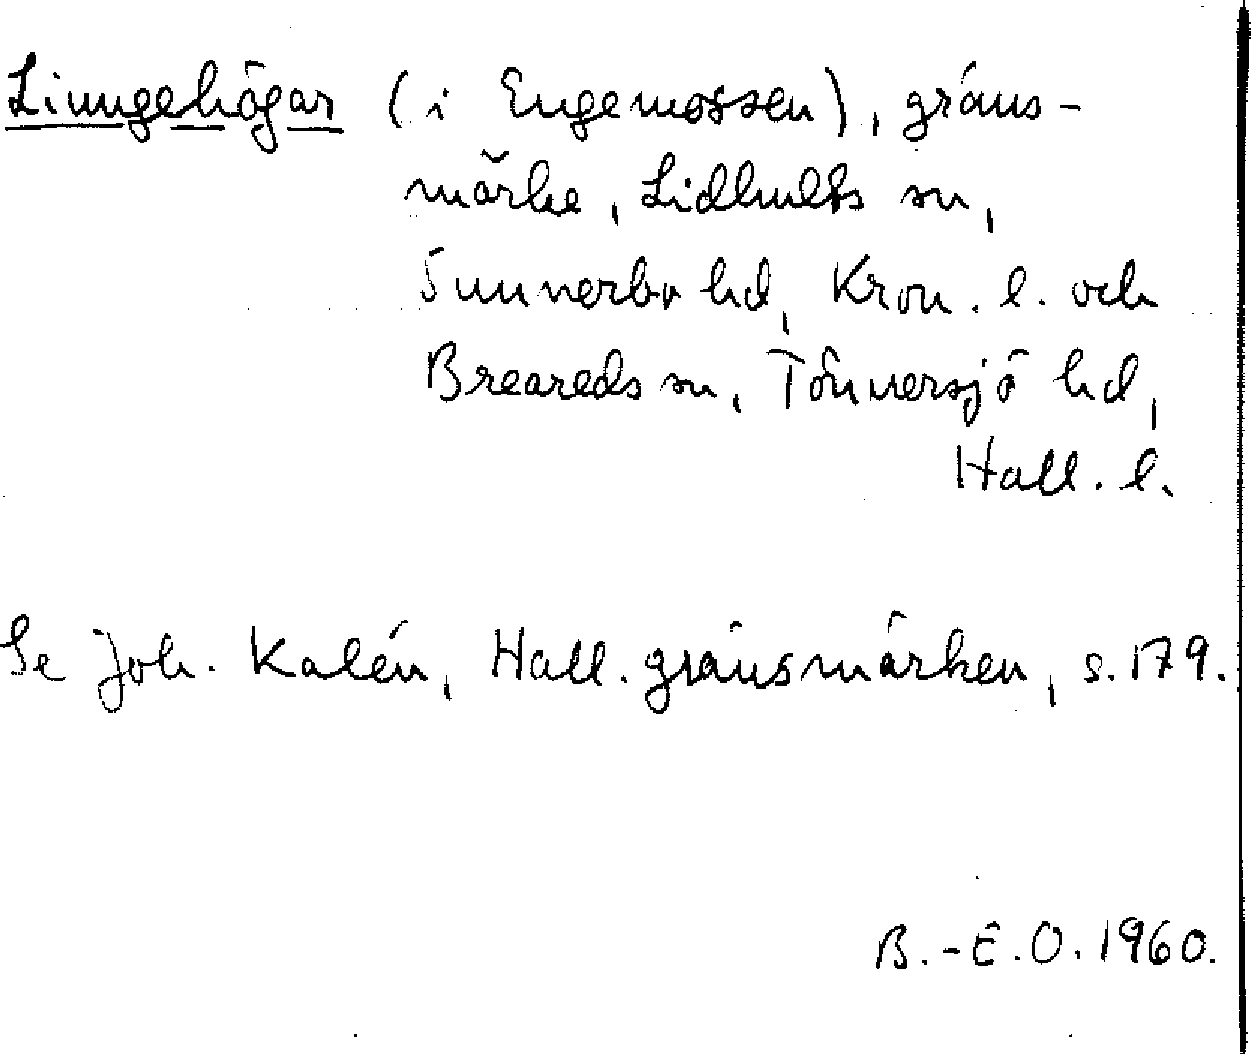 Linngehögar (i Engemossen), gräns-
märke, Lidhults sn,
Sunnerbo hd, Kron. l. och
Breareds sn, Tönnersjö hd,
Hall. l.
Se Joh. Kalén, Hall. gränsmärken, s. 179.
B.-E.O. 1960.